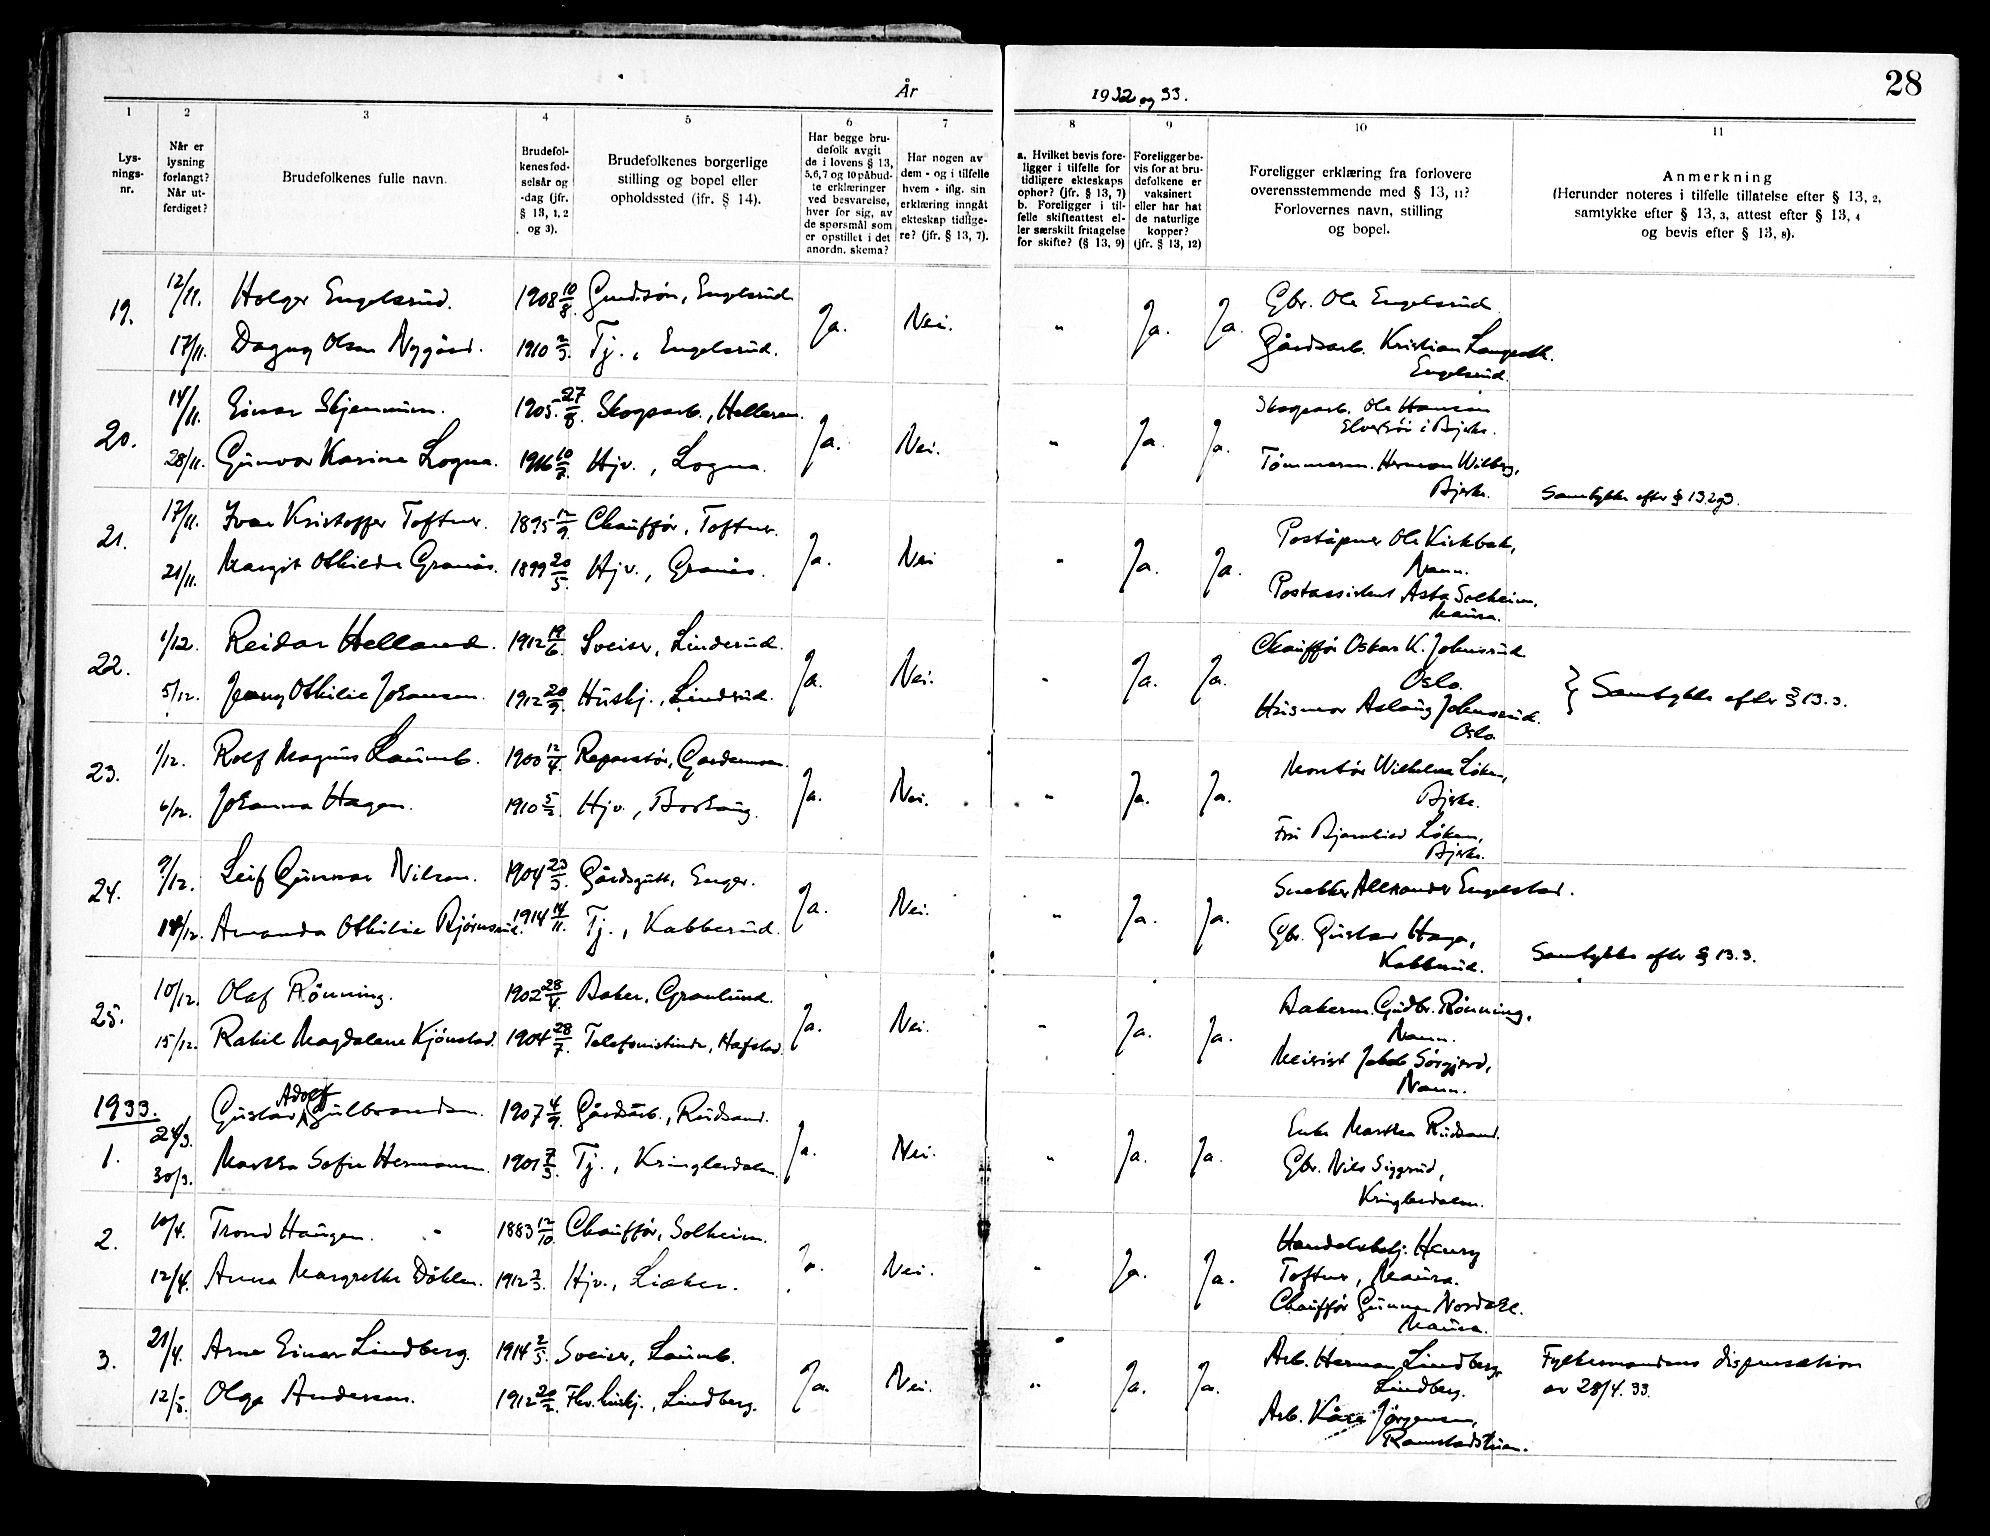 28
År 1932 og 33.
1 2 3 4 5 6 7 8 9 10 11
Lys-
nings-
nr.
Når er
lysning
forlangt?
Når ut-
ferdiget?
Brudefolkenes fulle navn.
Brudefol-
kenes fød-
selsår og
-dag (jfr.
§ 13, 1, 2
og 3).
Brudefolkenes borgerlige
stilling og bopel eller
opholdssted (jfr. § 14).
Har begge bru-
defolk avgit
de i lovens § 13,
5,6,7 og 10 påbud-
te erklæringer
ved besvarelse,
hver for sig, av
de spørsmål som
er opstillet i det
anordn. skema?
Har nogen av
dem - og i tilfelle
hvem - iflg. sin
erklæring inngått
ekteskap tidlige-
re? (jfr. § 13, 7).
a. Hvilket bevis fore-
ligger i tilfelle for
tidligere ekteskaps
ophør? (jfr. § 13, 7)
b. Foreligger i til-
felle skifteattest el-
ler særskilt fritagelse
for skifte? (§ 13, 9)
Foreligger be-
vis for at bru-
defolkene er
vaksinert
eller har hat
de naturlige
kopper?
(jfr. § 13, 12)
Foreligger erklæring fra forlovere
overensstemmende med § 13, 11?
Forlovernes navn, stilling
og bopel.
Anmerkning
(Herunder noteres i tilfelle tillatelse efter § 13, 2,
samtykke efter § 13, 3, attest efter § 13, 4
og bevis efter § 13, 8).
19. 12/11. Holger Engelsrud. 1908 10/8. Gårdsøn, Engelsrud Ja. Nei. " Ja. Ja. Gbr. Ole Engelsrud
17/11. Dagny Olsen Nygård. 1910 2/3. Tj., Engelsrud. Gårdsarb. Kristian Langseth.
Engelsrud.
20. 14/11. Einar Skjennum. 1905 27/8. Skogsarb., Helleren. Ja. Nei. " Ja. Ja. Skogsarb. Ole Hansen
i Bjerke.
28/11. Gunvor Karine Logna. 1916 10/7. Hjv., Logna. Tömmerm. Herman Wilberg,
Bjerke. Samtykke efter § 13.2 og 3.
21. 17/11. Ivar Kristoffer Toftner. 1895 12/9. Chauffør, Toftner. Ja. Nei " Ja. Ja. Poståpner Ole Kirkbak,
Nann.
21/11. Margit Othilde Granås. 1899 20/5. Hjv., Granås. Postassistent Asta Solheim,
Maura.
22. 1/12. Reidar Helland. 1912 19/6. Sveiser, Linderud. Ja. Nei. " Ja. Ja. Chauffør Oskar K. Johnsrud
Oslo.
5/12. Jenny Othilie Johansen. 1912 20/9. Hushj., Linderud. Husmor Aslaug Johnsrud.
Oslo. } Samtykke efter § 13.3.
23. 1/12. Rolf Magnus Laumb. 1900 12/4. Reparatør, Gardermoen. Ja. Nei. " Ja. Ja. Montør Wilhelm Løken,
Bjerke.
6/12. Johanna Hagen. 1910 5/2. Hjv., Borhaug. Fru Løken,
Bjerke.
24. 9/12. Leif Gunnar Nilsen. 1904 23/3. Gårdsgutt, Enger. Ja. Nei. " Ja. Ja. Snekker Alexander Engelstad.
14/12. Amanda Othilie Bjørnsrud. 1914 14/11. Tj., Kabberud. Gbr. Gustav Haga,
Kabberud. Samtykke efter § 13.3.
25. 10/12. Olaf Rønning. 1902 28/4. Baker, Granlund. Ja. Nei. " Ja. Ja. Bakerm. Gudbr. Rønning,
Nann.
15/12. Rakil Magdalene Kjønstad. 1904 28/7. Telefonistinde, Hafstad. Meierist Jakob Sørgjerd,
Nann.
1933.
1. 24/3. Gustav Adolf Gulbrandsen. 1907 4/9. Gårdsarb., Rudsand. Ja. Nei. " Ja. Ja. Enke Martha Rudsand.
30/3. Martha Sofie Hermansen. 1901 7/3. Tj., Kringlerdalen. Gbr. Nils Siggerud,
Kringlerdalen.
2. 10/4. Trond Haugen. 1883 12/10. Chauffør, Solheim. Ja. Nei. " Ja. Ja. Handelsbetj. Henry
Toftner, Maura.
12/4. Anna Margrethe Döhlen. 1912 2/3. Hjv., Liaker. Chauffør Gunnar Nordahl.
Maura.
3. 21/4. Arne Einar Lindberg. 1914 2/5. Sveiser, Laumb. Ja. Nei. " Ja. Ja. Arb. Herman Lindberg,
Lindberg. Fylkesmandens dispensation
av 28/4.33.
12/5. Olga Andersen. 1912 20/2. Fhv. hushj., Lindberg. Arb. Kåre Jørgensen,
Ramstadstuen.